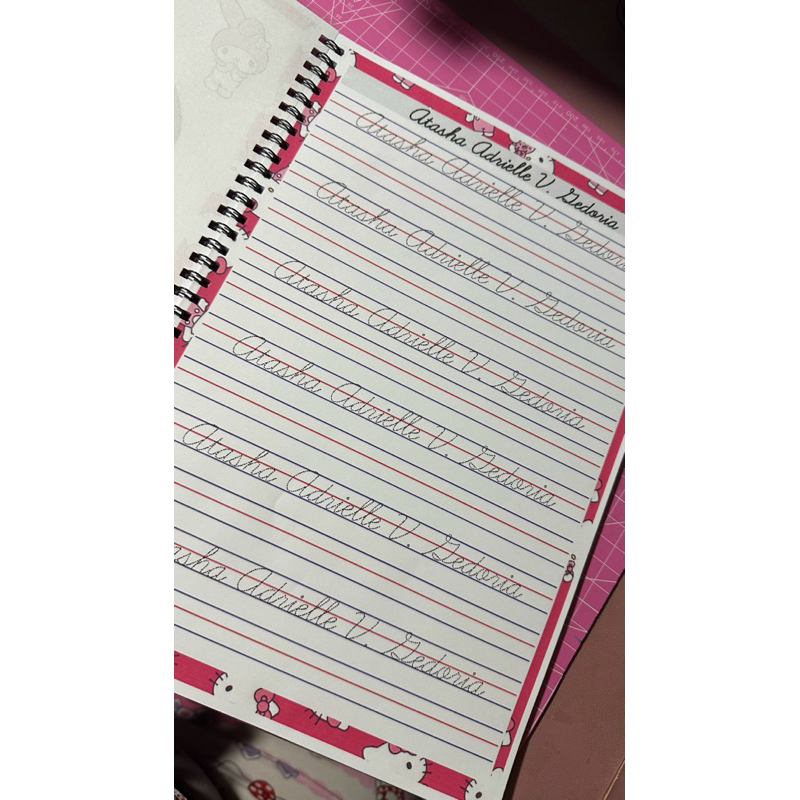 Atasha Adrielle V. Gedoria
Atasha Adrielle V. Gedoria
Atasha Adrielle V. Gedoria
Atasha Adrielle V. Gedoria
Atasha Adrielle V. Gedoria
Atasha Adrielle V. Gedoria
Atasha Adrielle V. Gedoria